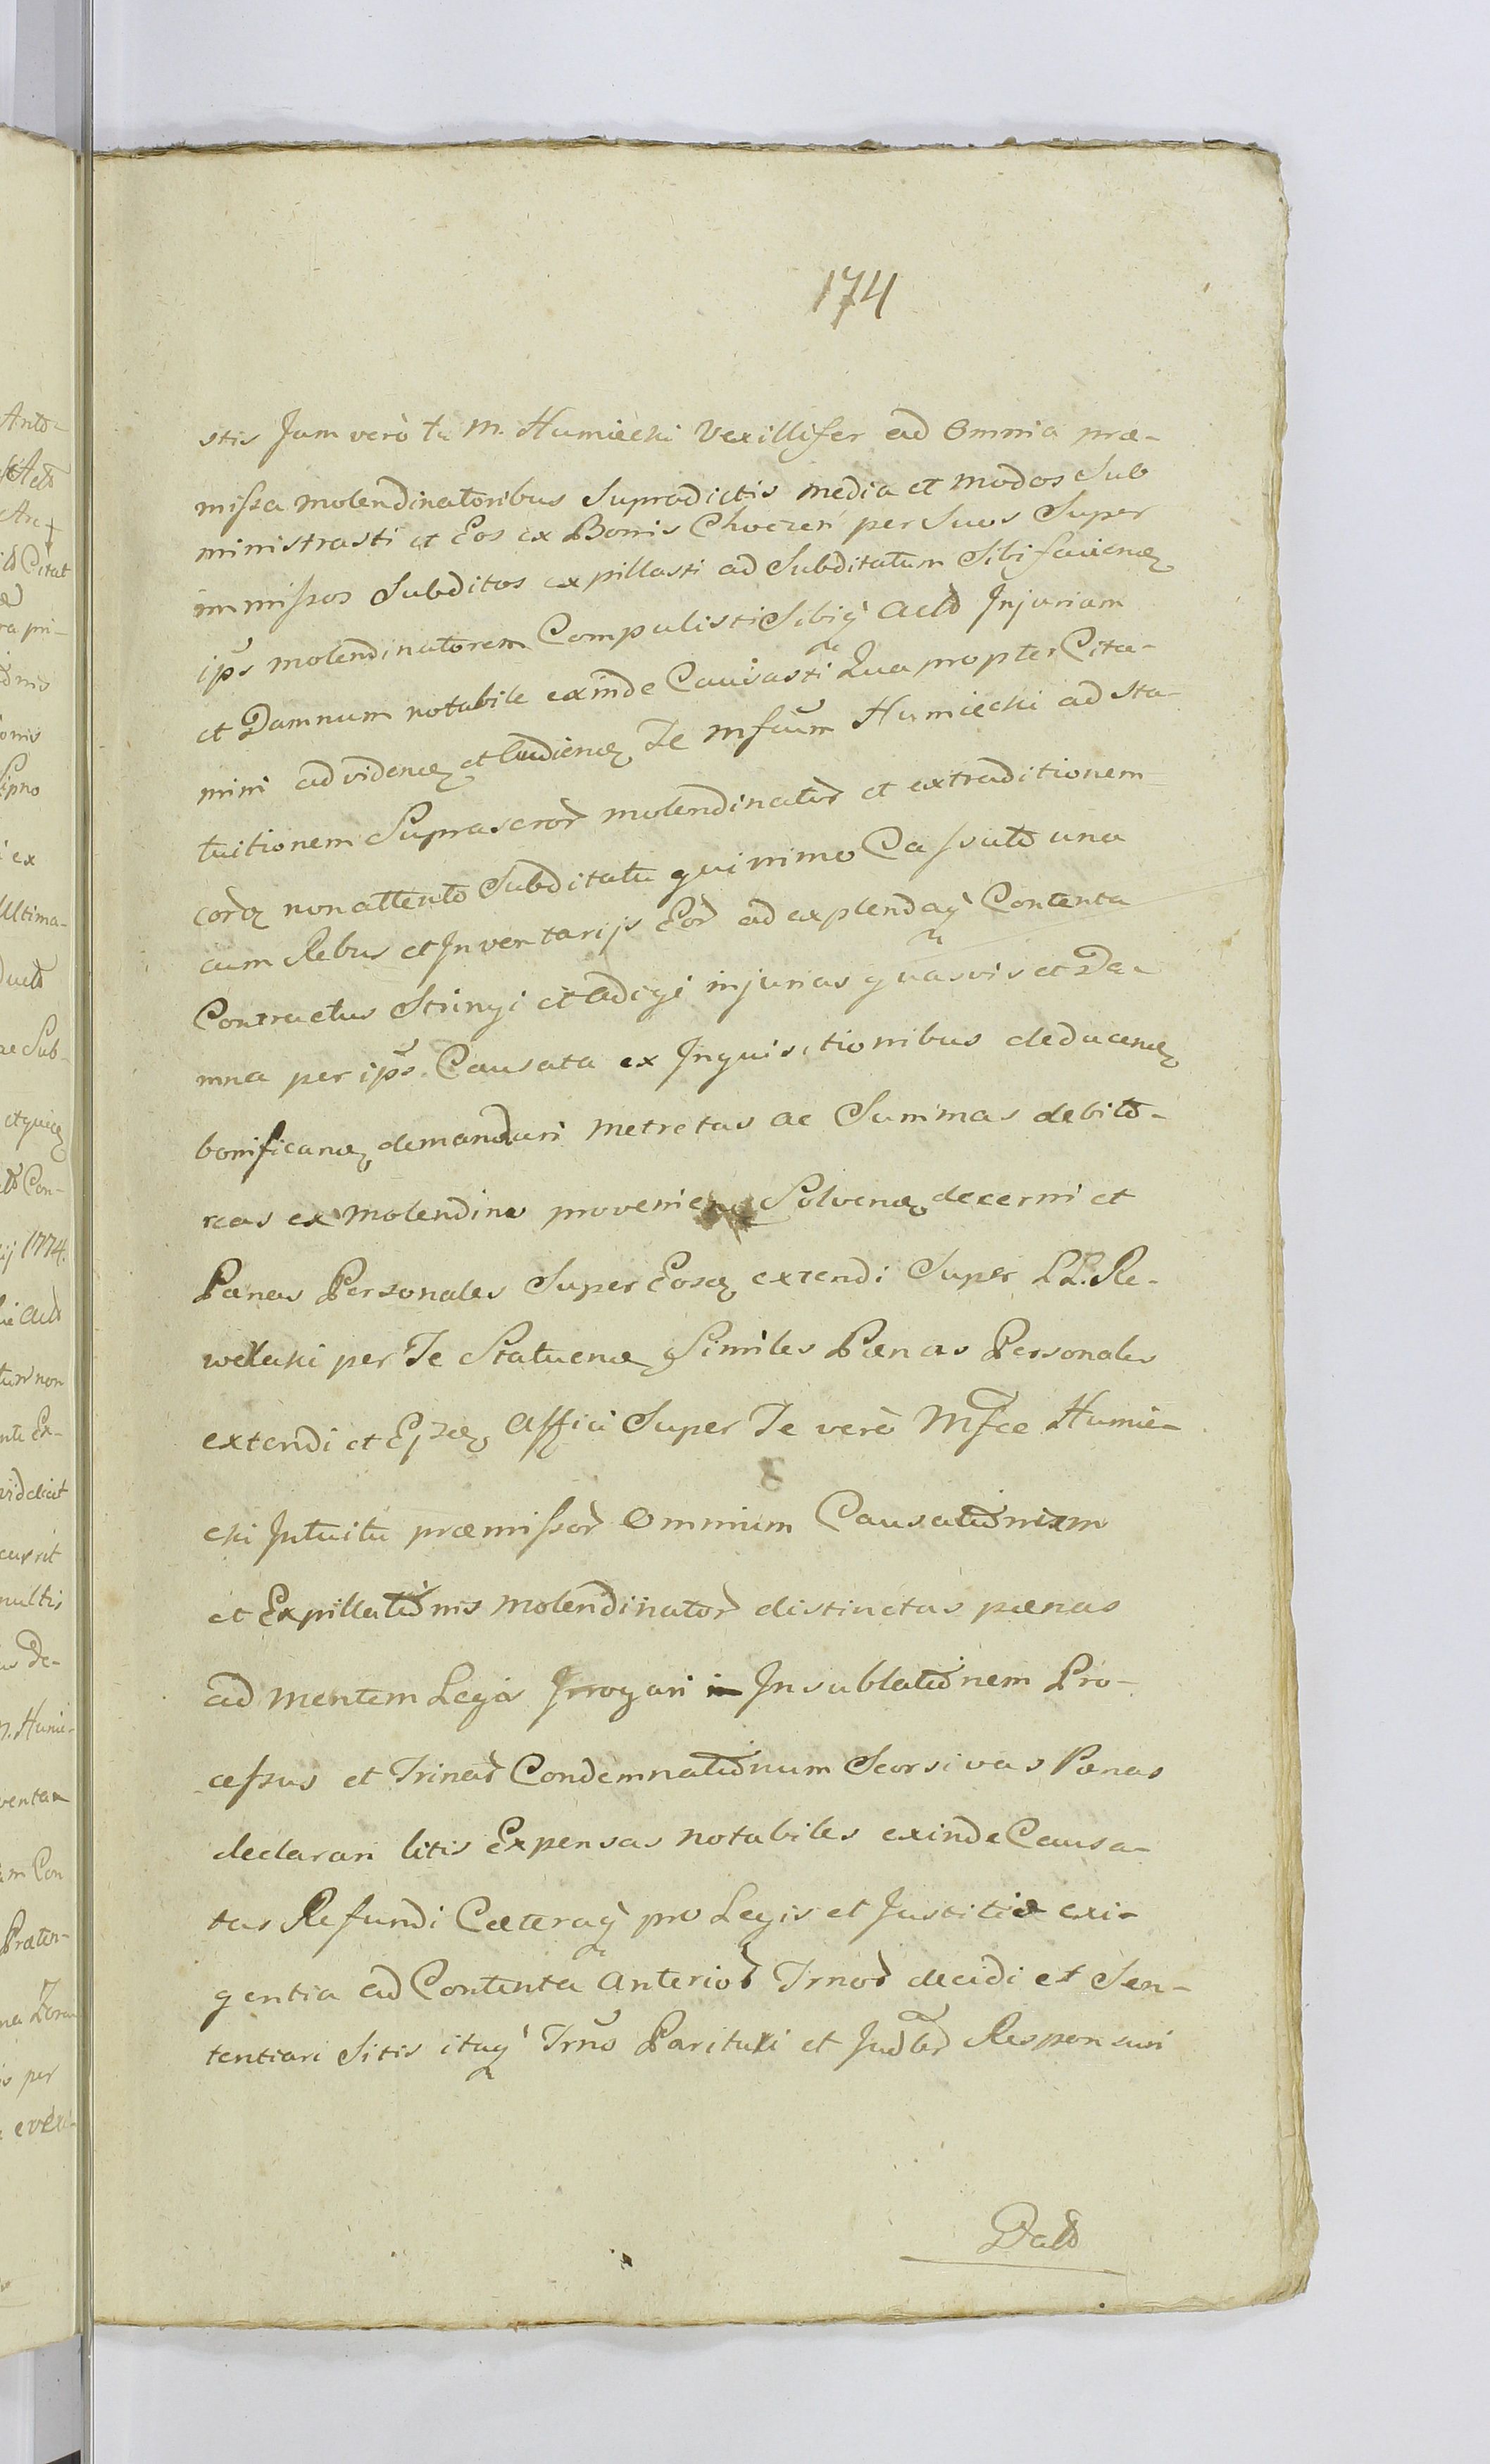 174
stis Jam verò tu M. Humiecki Vexillifer ad Omnia præ-
missa molendinatoribus Supradictis media et modos Sub
ministrasti et Eos ex Bonis Choczeń per Suos Super
immissos Subditos expillasti ad Subditatum Sibi faciend
ips molendinatorem Compulisti Sibiq Acto Injuriam
et Damnum notabile exinde Causasti Qua propter Cita-
mini ad vidend et Audiend Te Mfcum Humiecki ad sta-
tuitionem Suprascror molendinator et extraditionem
cord non attento Subditatu quinimo Cassato una
cum Rebus et Inventarijs Eor ad explendaq Contenta
Contractus Stringi et Adigi injurias quasvis et Da-
mna per ips Causata ex Inquisitionibus deducend
bonificand demandari metretas ac Summas debito-
reas ex Molendino provenien Solvend decerni et
Pænas Personales Super Eosd extendi Super LL. Re-
welski per Te Statuend Similes Pænas Personales
extendi et Eisd Affici Super Te verò Mfce Humie-
cki Intuitu præmissor Omnium Causationum
et Expillationis Molendinator distinctas pænas
ad mentem Legis Irrogari in Insublationem Pro-
cessus et Trinar Condemnationum Seorsivas Pœnas
declarari litis Expensas notabiles exinde Causa-
tas Refundi Cæteraq pro Legis et Justitiæ exi-
gentia ad Contenta Anterior Trnor decidi et Sen-
tentiari Sitis itaq Trno Parituri et Judlr Responsuri
Dato